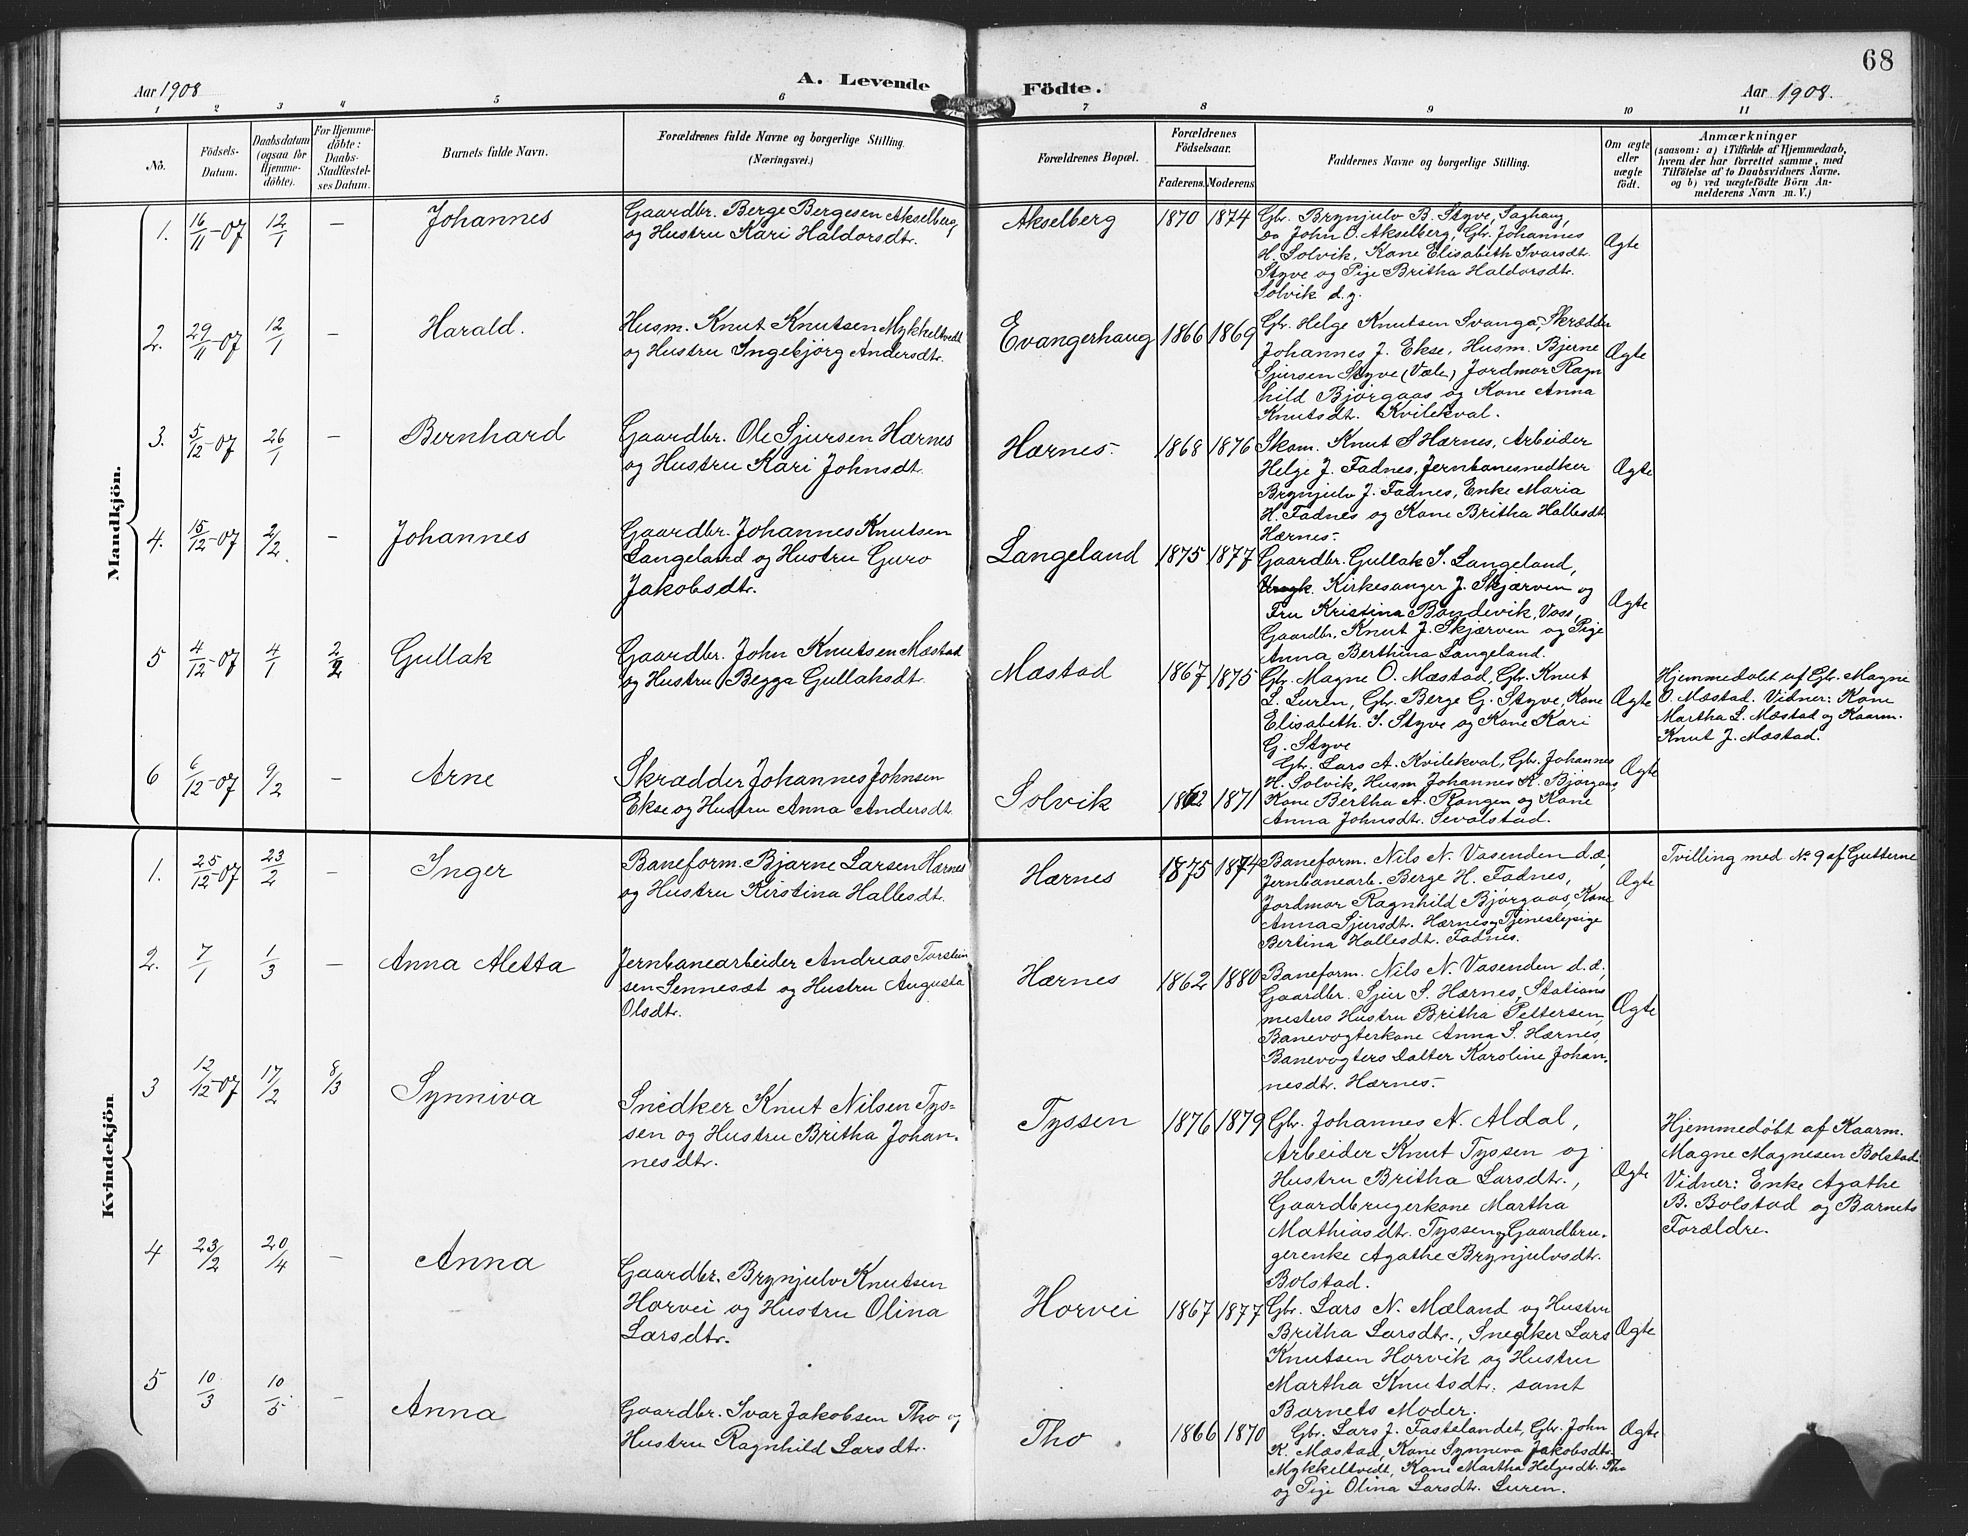 68
Aar 1908
A. Levende
Födte.
Aar 1908.
1 2 3 4 5 6 7 8 9 10 11
No.
Födsels-
Datum.
Daabsdatum
(ogsaa for
Hjemme-
döbte).
For Hjemme-
döbte:
Daabs-
Stadfæstel-
ses Datum.
Barnets fulde Navn.
Forældrenes fulde Navne og borgerlige Stilling.
(Næringsvei.)
Forældrenes Bopæl.
Forældrenes
Födselsaar.
Faderens. Moderens
Faddernes Navne og borgerlige Stilling.
Om ægte
eller
uægte
födt.
Anmærkninger
(saasom: a) i Tilfælde af Hjemmedaab,
hvem der har forrettet samme, med
Tilföielse af to Daabsvidners Navne.
og b) ved uægtefödte Börn An-
melderens Navn m. V.)
Mandkjön.
1. 16/11-07 12/1 — Johannes
Gaardbr. Berge Bergesen Akselberg
og Hustru Kari Haldorsdtr.
Akselberg 1870 1874
Gbr. Brynjulv B. Styve, Saghaug,
Do John O. Akselberg, Gbr. Johannes
H. Solvik, Kone Elisabeth Ivarsdtr.
Styve og Pige Britha Haldorsdtr.
Solvik d.y.
Ægte
2. 29/11-07 12/1 — Harald.
Husm. Knut Knutsen Mykkeltvedt
og Hustru Ingebjörg Andersdtr.
Evangerhaug 1866 1869
Gbr. Helge Knutsen Svanga, Skrædder
Johannes J. Ekse, Husm. Bjerne
Sjursen Styve (Væle) Jordmor Ragn
hild Bjørgaas og Kone Anna
Knutsdtr. Kvilekval.
Ægte
3. 5/12-07 26/1 — Bernhard
Gaardbr. Ole Sjursen Hærnes
og Hustru Kari Johnsdt.
Hærnes. 1868 1876
Skom. Knut S Hærnes, Arbeider
Helge J. Fadnes, Jernbanesnedker
Brynjulv J. Fadnes, Enke Maria
H. Fadnes og Kone Britha Hallesdt.
Hærnes.
Ægte
4. 15/12-07 2/2. — Johannes
Gaardbr. Johannes Knutsen
Langeland og Hustru Guro
Jakobsdtr.
Langeland 1875 1877
Gaardbr. Gullak S. Langeland,
Kirkesanger J. Skjærven og
Fru Kristina Bondevik, Voss,
Gaardbr. Knut J. Skjærven og Pige
Anna Berthina Langeland.
Ægte
5 4/12-07 4/1 2/2 Gullak
Gaardbr. John Knutsen Mæstad
og Hustru Begga Gullaksdt.
Mæstad 1867 1875
Gbr. Magne O. Mæstad, Gbr. Knut
L. Luren, Gbr. Berge G. Styve, Kone
Elisabeth. I. Styve og Kone Kari
G. Styve
Ægte
Hjemmedøbt af Gbr. Magne
O. Mæstad. Vidner: Kone
Martha L. Mæstad og Kaarm.
Knut J. Mæstad.
6 6/12-07 9/2 — Arne
Skrædder Johannes Johnsen
Ekse og Hustru Anna Andersdt.
Solvik 1862 1871
Gbr. Lars A. Kvilekval, Gbr. Johannes
H. Solvik, Husm Johannes K. Bjørgaas,
Kone Bertha A. Rongen og Kone
Anna Johnsdtr. Sevalstad.
Ægte
Kvindekjön
1. 25/12-07 23/2 — Inger
Baneform. Bjarne Larsen Hærnes
og Hustru Kirstina Hallesdt.
Hærnes 1875 1874
Baneform. Nils N. Vasenden d.æ,
Jernbanearb. Berge H. Fadnes,
Jordmor Ragnhild Bjørgaas, Kone
Anna Sjursdtr. Hærnes og Tjenestepige
Bertina Hallesdtr. Fadnes.
Ægte
Tvilling med No 9 af Gutterne
2. 7/1 1/3 — Anna Aletta
Jernbanearbeider Andreas Torstein
sen Sennesæt og Hustru Augusta
Olsdtr.
Hærnes 1862 1880
Baneform. Nils N. Vasenden d.æ,
Gaardbr. Sjur S. Hærnes, Stations
mesters Hustru Britha Pettersen,
Banevogterkone Anna S. Hærnes,
Banevogters Datter Karoline Johan.
nesdtr. Hærnes.
Ægte
3 12/12-07 17/2 8/3 Synniva
Snedker Knut Nilsen Tys-
sen og Hustru Britha Johan-
nesdtr.
Tyssen 1876 1879
Gbr. Johannes N. Aldal,
Arbeider Knut Tyssen og
Hustru Britha Larsdtr.,
Gaardbrugerkone Martha
Mathiasdtr. Tyssen og Gaardbru-
gerenke Agathe Brynjulvsdtr.
Bolstad.
Ægte
Hjemmedøbt af Kaarm.
Magne Magnesen Bolstad
Vidner: Enke Agathe
B. Bolstad og Barnets
Forældre.
4 23/2 20/4 — Anna
Gaardbr. Brynjulv Knutsen
Horvei og Hustru Olina
Larsdtr.
Horvei 1867 1877
Gbr. Lars N. Mæland og Hustru
Britha Larsdtr., Snedker Lars
Knutsen Horvik og Hustru
Martha Knutsdtr. samt
Barnets Moder.
Ægte
5 10/3 10/5 — Anna
Gaardbr. Ivar Jakobsen Tho og
Hustru Ragnhild Larsdtr.
Tho 1866 1870
Gbr. Lars J. Fastelandet, Gbr. John
K. Mæstad, Kone Synneva Jakobsdtr.
Mykkeltvedt, Kone Martha Helgesdtr. Tho
og Pige Olina Larsdtr. Luren.
Ægte